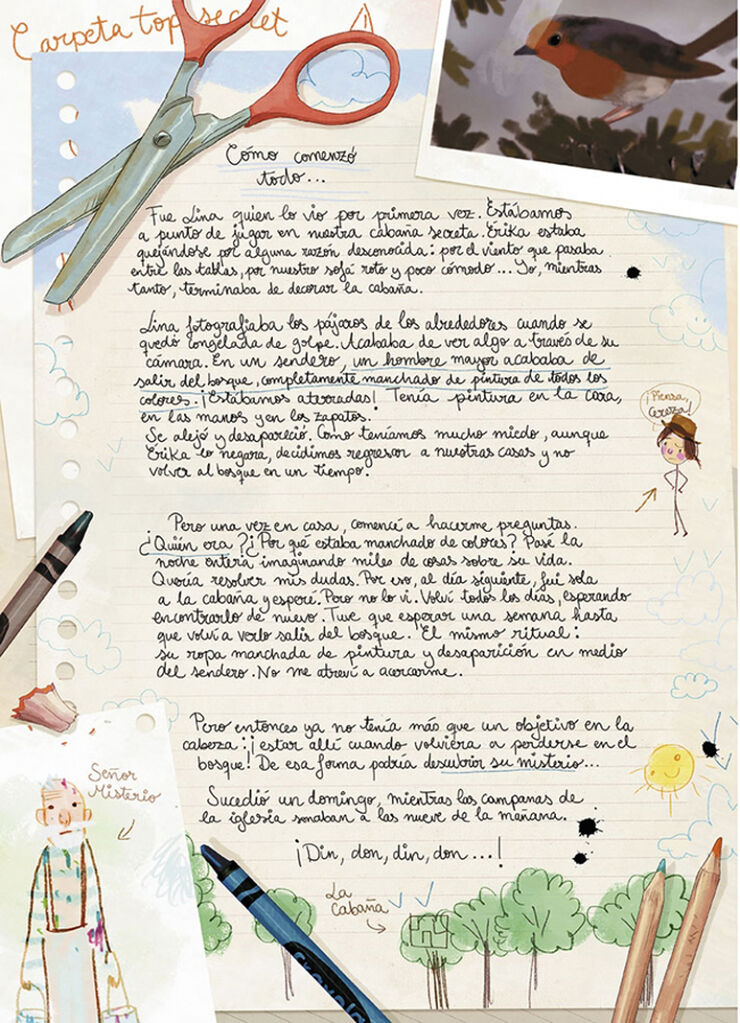 Carpeta top secret
Cómo comenzó
todo...
Fue Lina quien lo vio por primera vez. Estábamos
a punto de jugar en nuestra cabaña secreta. Erika estaba
quejándose por alguna razón desconocida: por el viento que pasaba
entre las tablas, por nuestro sofá roto y poco cómodo... Yo, mientras
tanto, terminaba de decorar la cabaña.
Lina fotografiaba los pájaros de los alrededores cuando se
quedó congelada de golpe. Acababa de ver algo a través de su
cámara. En un sendero, un hombre mayor acababa de
salir del bosque, completamente manchado de pintura de todos los
colores. ¡Estábamos aterradas! Tenía pintura en la cara,
en las manos y en los zapatos.
Se alejó y desapareció. Como teníamos mucho miedo, aunque
Erika lo negara, decidimos regresar a nuestras casas y no
volver al bosque en un tiempo.
¡Piensa,
Cereza!
Pero una vez en casa, comencé a hacerme preguntas.
¿Quién era? ¿Por qué estaba manchado de colores? Pasé la
noche entera imaginando miles de cosas sobre su vida.
Quería resolver mis dudas. Por eso, al día siguiente, fui sola
a la cabaña y esperé. Pero no lo vi. Volví todos los días, esperando
encontrarlo de nuevo. Tuve que esperar una semana hasta
que volví a verlo salir del bosque. El mismo ritual:
su ropa manchada de pintura y desaparición en medio
del sendero. No me atreví a acercarme.
Pero entonces ya no tenía más que un objetivo en la
cabeza: ¡estar allí cuando volviera a perderse en el
bosque! De esa forma podría descubrir su misterio...
Sucedió un domingo, mientras las campanas de
la iglesia sonaban a las nueve de la mañana.
¡Din, don, din, don...!
Señor
Misterio
La
Cabaña